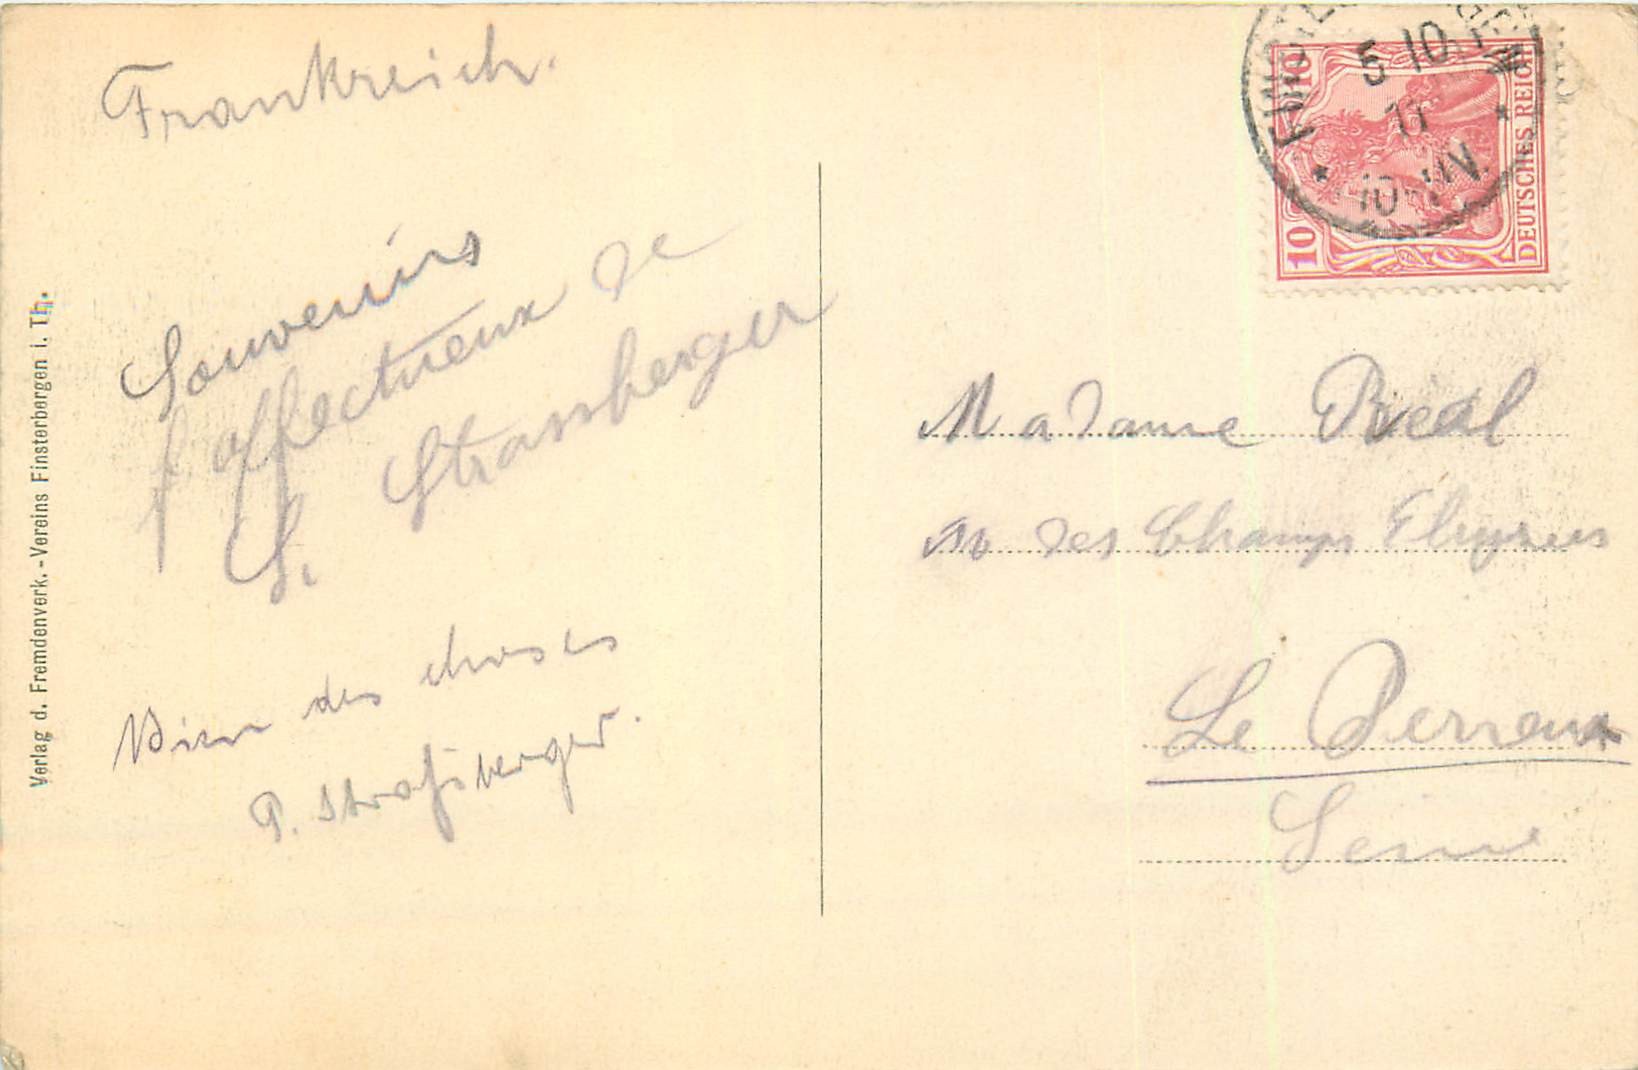 Frankreich.
Souvenirs
affectueux de
S. Strassberger
Bien des choses
P. Straßberger.
Verlag d. Fremdenverk.-Vereins Finsterbergen i. Th.
5 10
11
10-11V.
10 10
DEUTSCHES REICH
Madame Réal
des Champs Elysées
Le Perreux
Seine